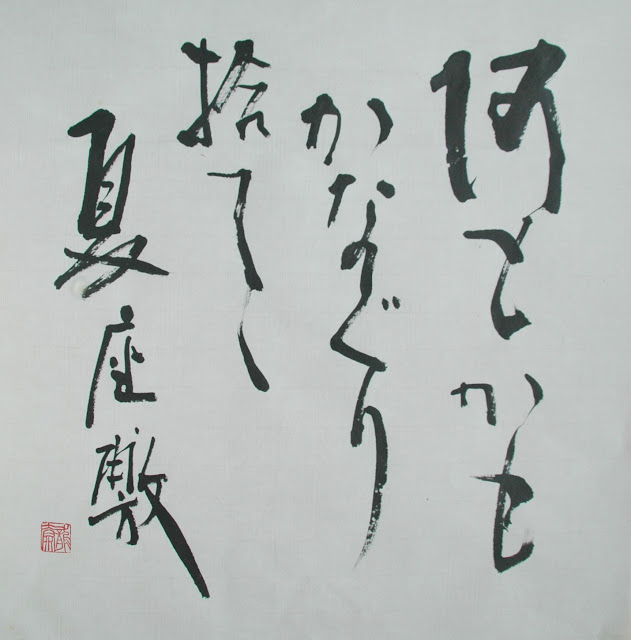 何もかも
かなぐり
捨てゝ
夏座敷